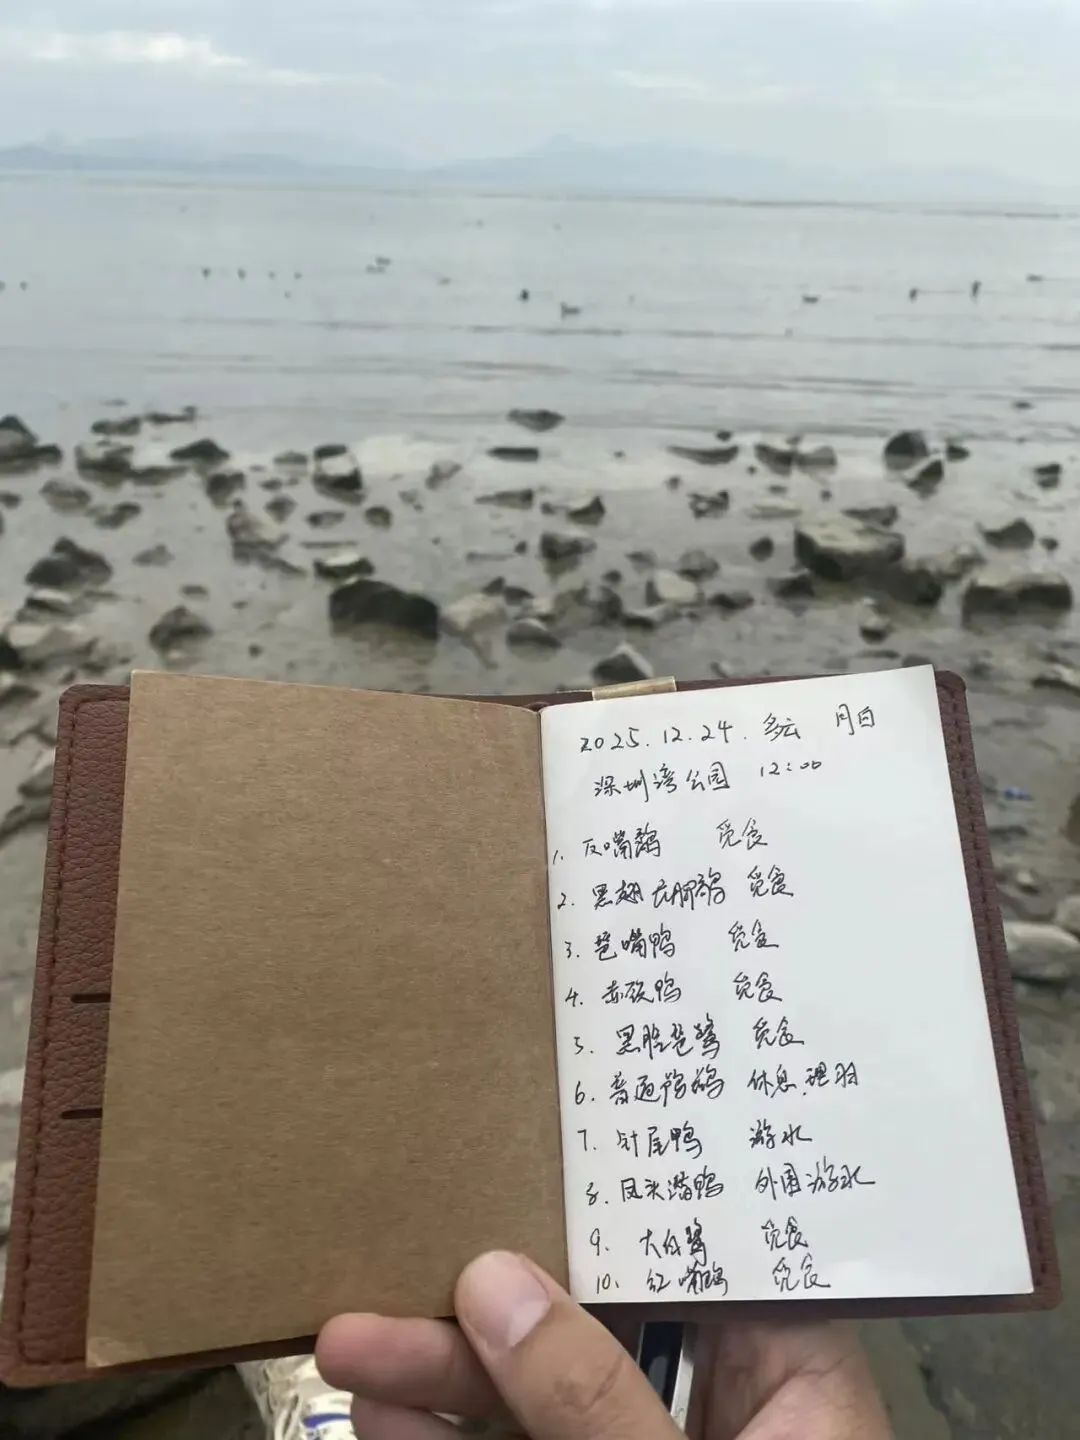 2025.12.24. 多云 月白
深圳湾公园 12:00
1. 反嘴鹬 觅食
2. 黑翅长脚鹬 觅食
3. 琶嘴鸭 觅食
4. 赤颈鸭 觅食
5. 黑脸琵鹭 觅食
6. 普通鸬鹚 休息、理羽
7. 针尾鸭 游水
8. 凤头潜鸭 外围游水
9. 大白鹭 觅食
10. 红嘴鸥 觅食